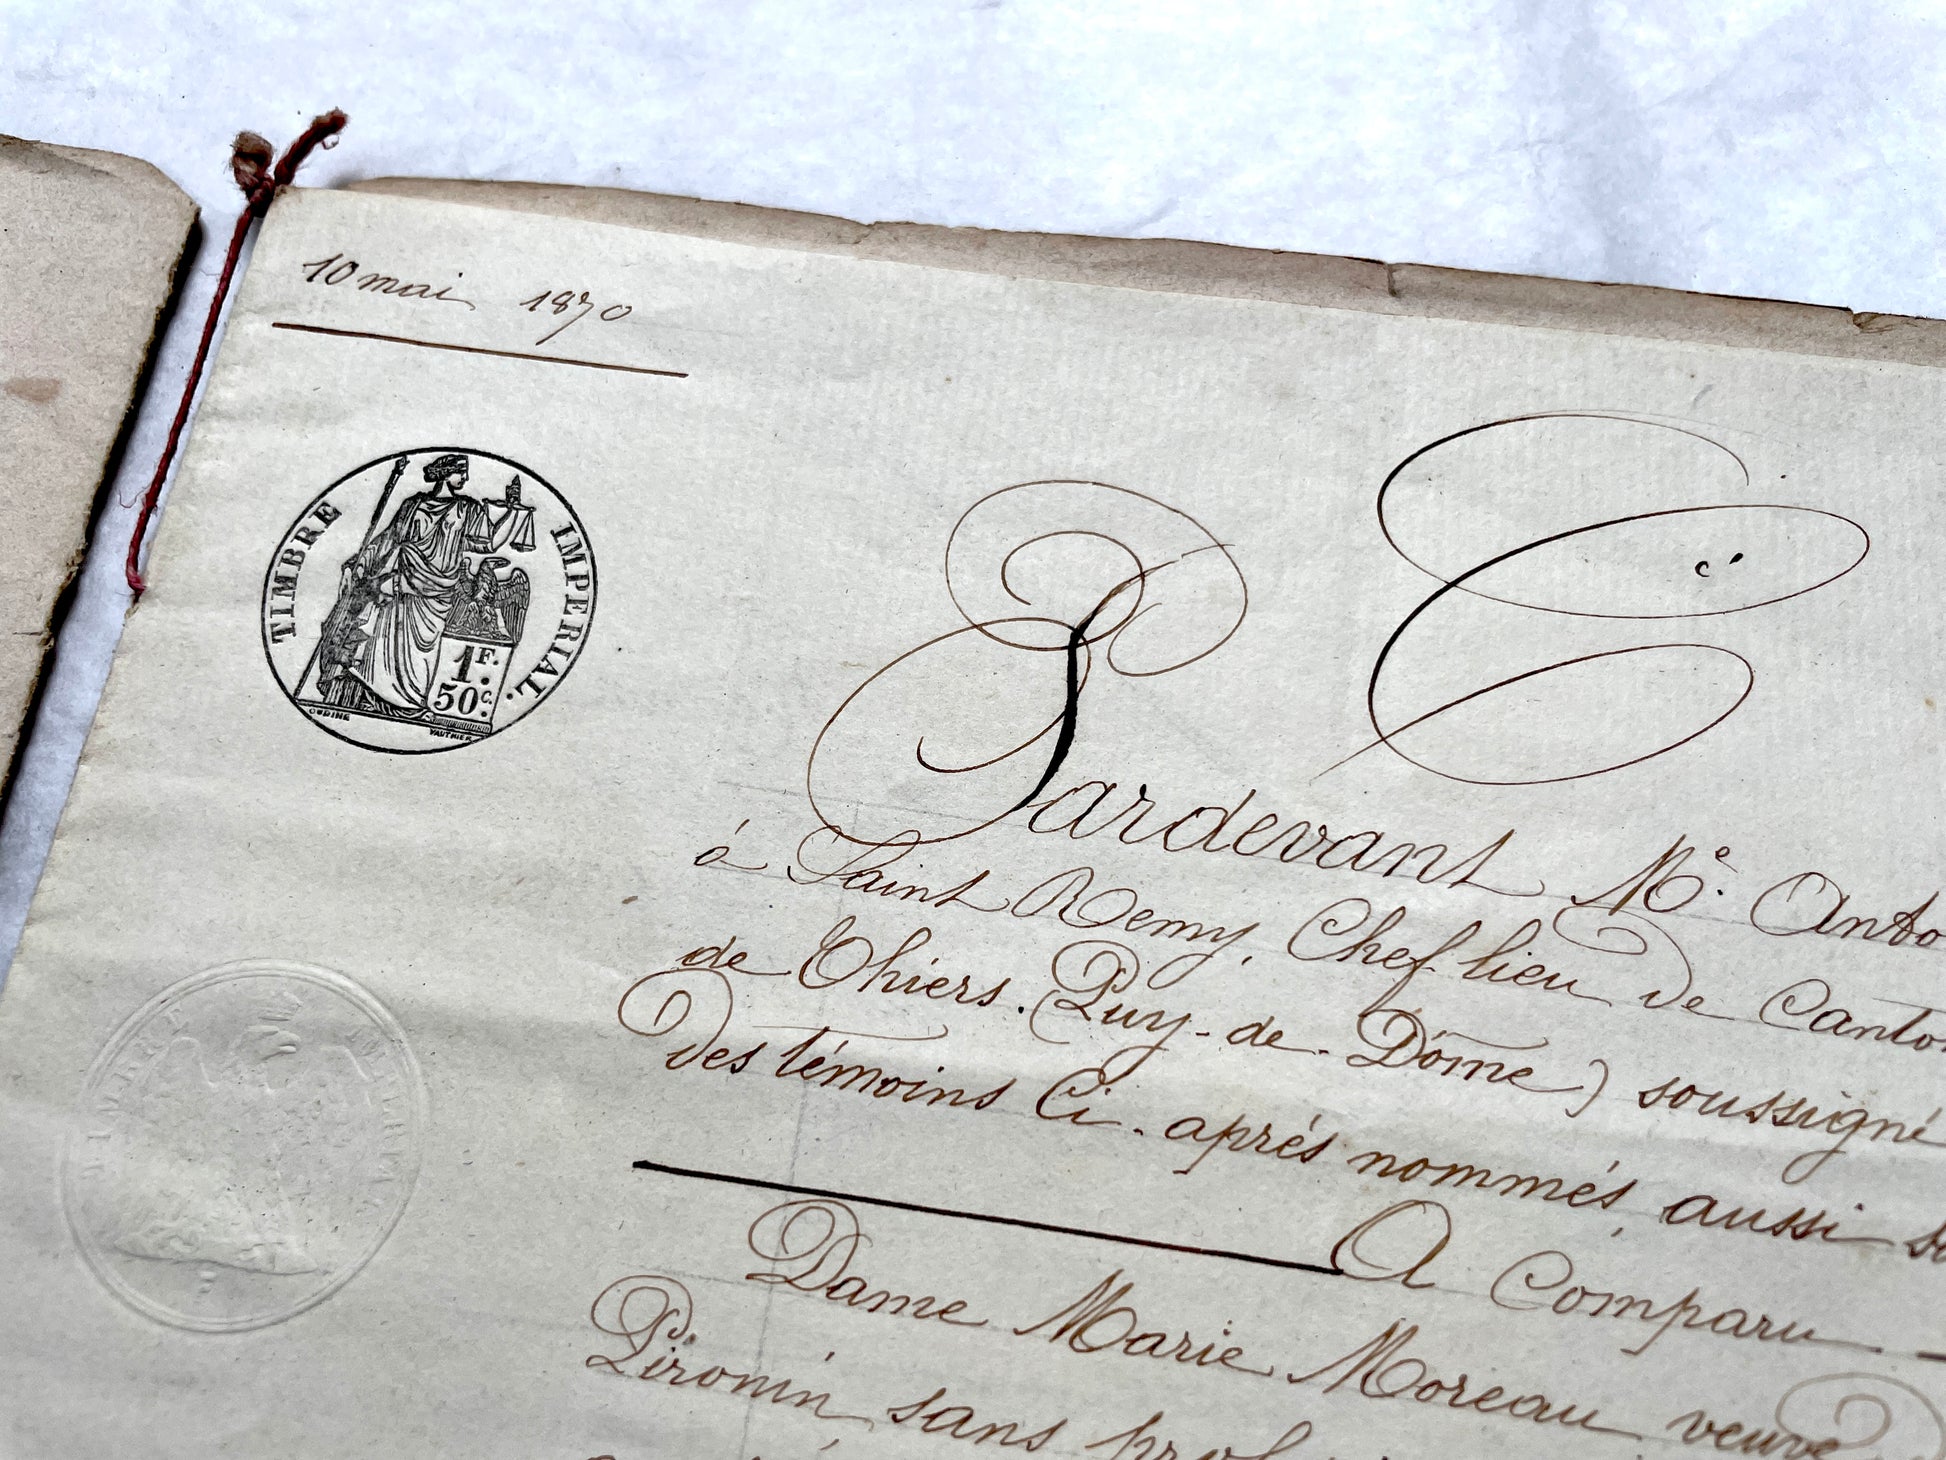 10 mai 1870
TIMBRE IMPERIAL.
1F.
50c.
OUDINE VAUTHIER
Pardevant Me. Anto
à Saint Remy, Chef lieu de Canton
de Thiers. (Puy-de-Dôme) soussigné
des témoins Ci-après nommés, aussi so
A Comparu
Dame Marie Moreau veuve
Pironin, sans prof